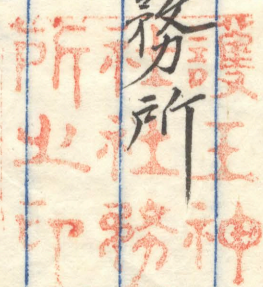 務所
護王神
社社務
所之印